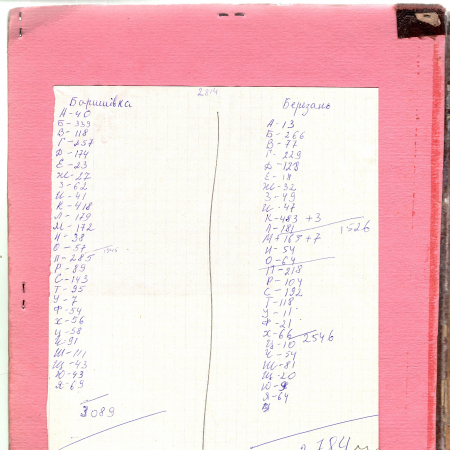 2814
Баришівка
А-40
Б-339
В-118
Г-257
Д-174
Е-23
Ж-27
З-62
И-41
К-418
Л-179
М-172
Н-38
О-57
П-285
Р-89
С-143
Т-95
У-7
Ф-54
Х-56
Ц-58
Ч-91
Ш-111
Щ-43
Ю-43
Я-69
3089
Березань
А-13
Б-266
В-77
Г-229
Д-128
Е-18
Ж-32
З-49
И-47
К-483 +3
Л-181
1526
М+165+7
Н-54
О-64
П-218
Р-104
С-192
Т-118
У-11
Ф-21
Х-66
2546
Ц-10
Ч-54
Ш-81
Щ-20
Ю-9
Я-64